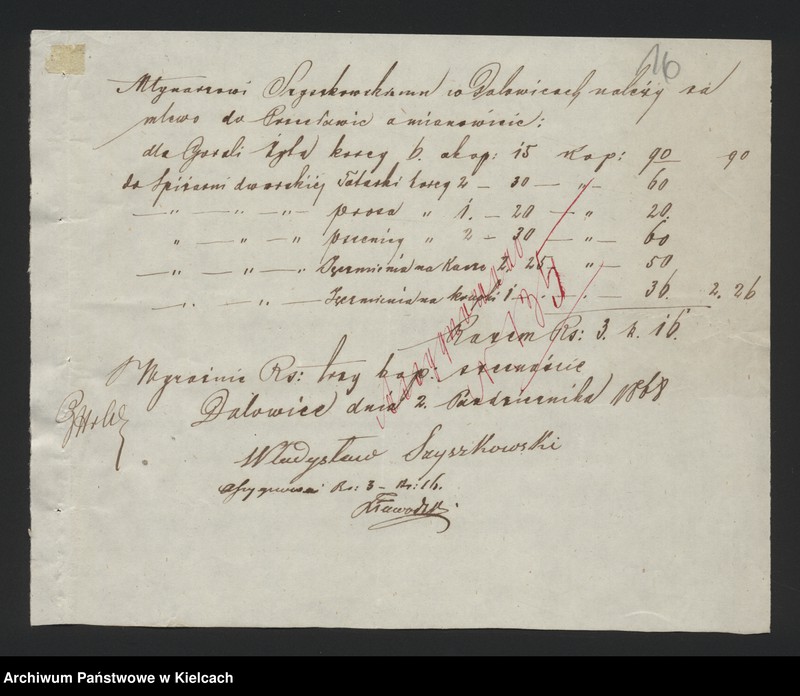 16
Młynarzowi Szyszkowskiemu w Dalowicach należy za
mlewo do a mianowicie:
dla Gorali Żyta korcy 6. a kop: 15 Kop: 90 90
do Spiżarni dworskiéj Tatarki korcy 2 — 30 — " — 60
— " — " — " — prosa " 1. — 20 — " 20.
" — " — " pszenicy " 2 — 30 — " — 60
— " — " — " Jęczmienia na Kasze 2 25 " — 50
— " — " — Jęczmienia na 1 — " — 36. 2. 26
Razem Rs: 3. k. 16.
Wyraźnie Rs: trzy kop. szesnaście
Dalowice dnia 2. Października 1868
Władysław Szyszkowski
Rs: 3 — k: 16.
N 135
Archiwum Państwowe w Kielcach